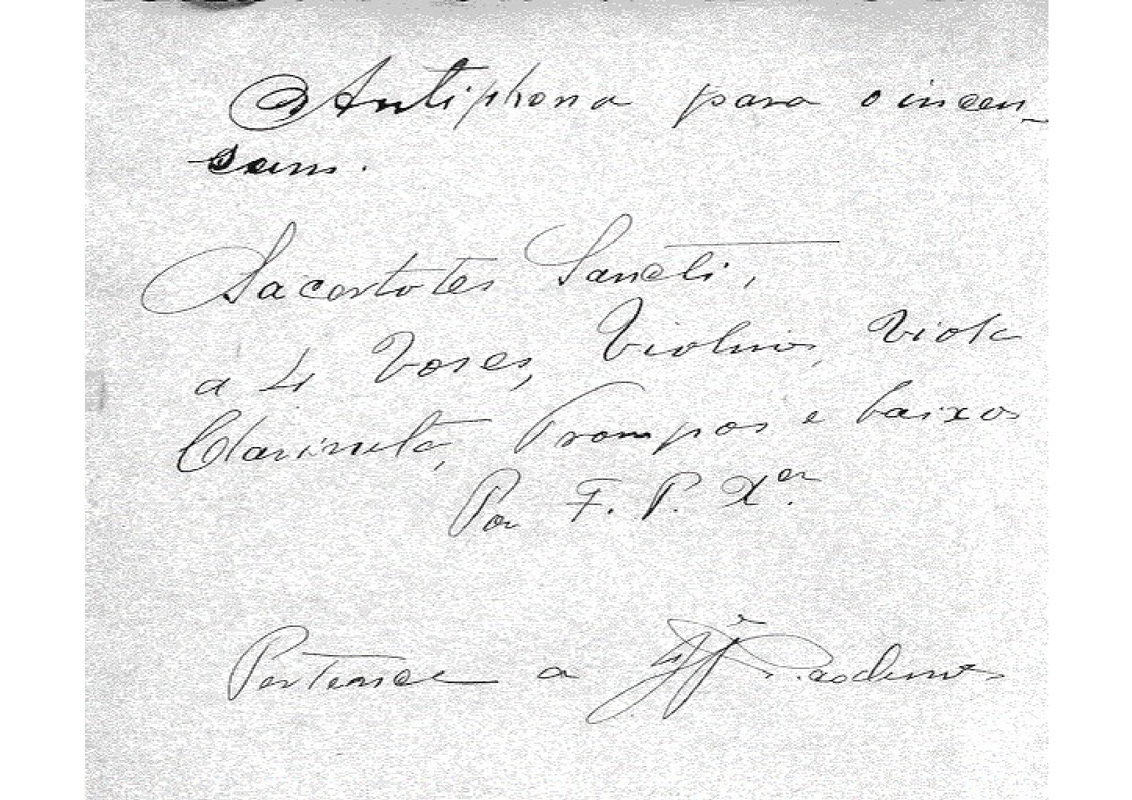 Antiphona para o incen-
sam.
Sacertotes Sancti,
a 4 Voses, Violinos, Viola
Clarineta, Trompas e baixos
Por F. P. X.er
Pertense a